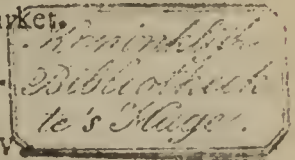 rket.
Koninklijke
Bibliotheek
te's Hage.